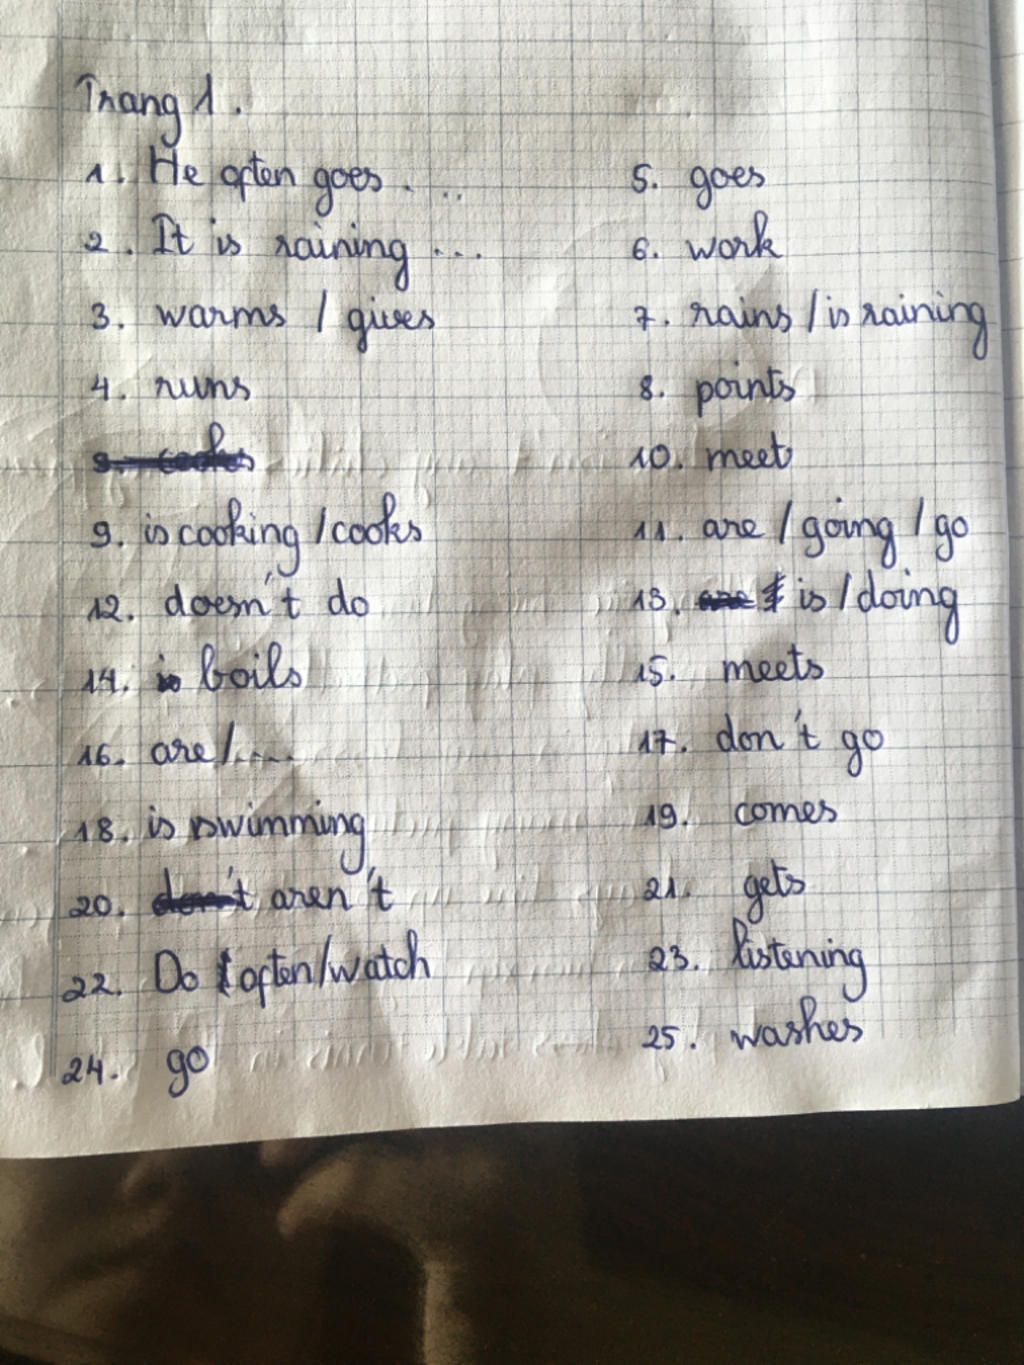 Trang 1.
1. He often goes ...
5. goes
2. It is raining ...
6. work
3. warms / gives
7. rains / is raining
4. runs
8. points
10. meet
9. is cooking / cooks
11. are / going / go
12. doesn't do
13. is / doing
14. boils
15. meets
16. are / ....
17. don't go
18. is swimming
19. comes
20. aren't
21. gets
22. Do / often / watch
23. listening
24. go
25. washes